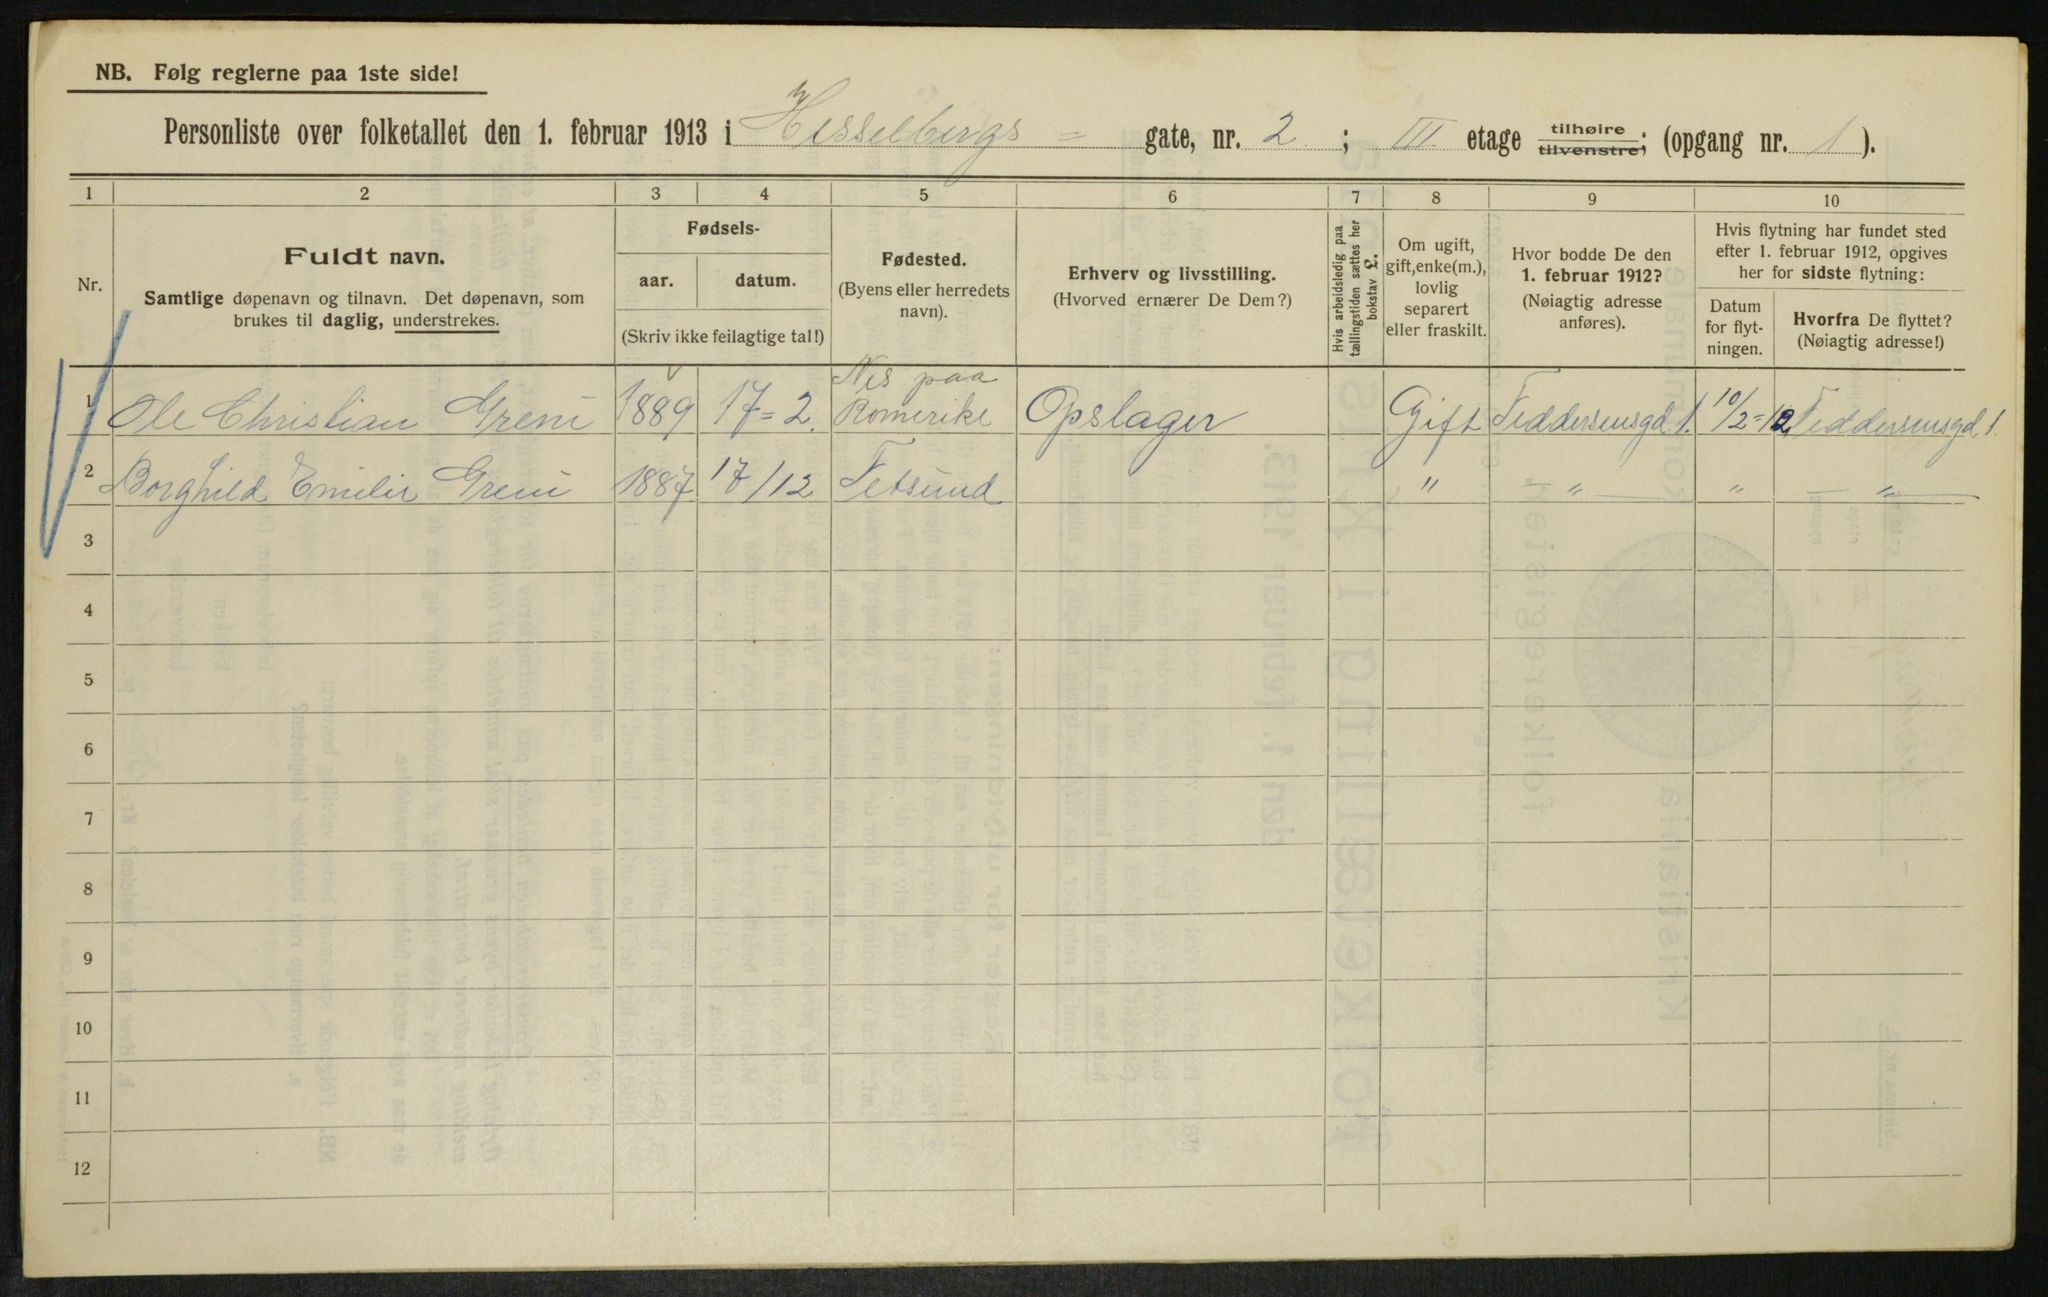 NB. Følg reglerne paa 1ste side!
Personliste over folketallet den 1. februar 1913 i Hesselbergs = gate, nr. 2 ; III etage tilhøire tilvenstre; (opgang nr. 1 ).
1 2 3 4 5 6 7 8 9 10
Nr.
Fuldt navn.
Samtlige døpenavn og tilnavn. Det døpenavn, som
brukes til daglig, understrekes.
Fødsels-
aar. datum.
(Skriv ikke feilagtige tal!)
Fødested.
(Byens eller herredets
navn).
Erhverv og livsstilling.
(Hvorved ernærer De Dem?)
Hvis arbeidsledig paa
tællingstiden sættes her
bokstav L.
Om ugift,
gift, enke(m.),
lovlig
separert
eller fraskilt.
Hvor bodde De den
1. februar 1912?
(Nøiagtig adresse
anføres).
Hvis flytning har fundet sted
efter 1. februar 1912, opgives
her for sidste flytning:
Datum
for flyt-
ningen.
Hvorfra De flyttet?
(Nøiagtig adresse!)
1 Ole Christian Greni 1889 17=2. Nes paa Romerike Opslager Gift Feddersensgd 1. 10/2=12 Feddersensgd 1.
2 Borghild Emilie Greni 1887 17/12 Fetsund " " " "
3
4
5
6
7
8
9
10
11
12